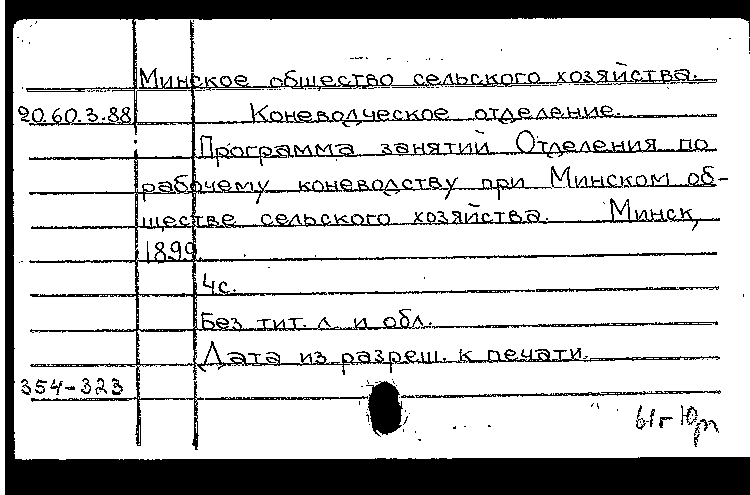 Минское общество сельского хозяйства.
20.60.3.88 Коневодческое отделение.
Программа занятий Отделения по
рабочему коневодству при Минском об-
ществе сельского хозяйства. Минск,
1899.
4с.
Без тит. л. и обл.
Дата из разреш. к печати.
354-323